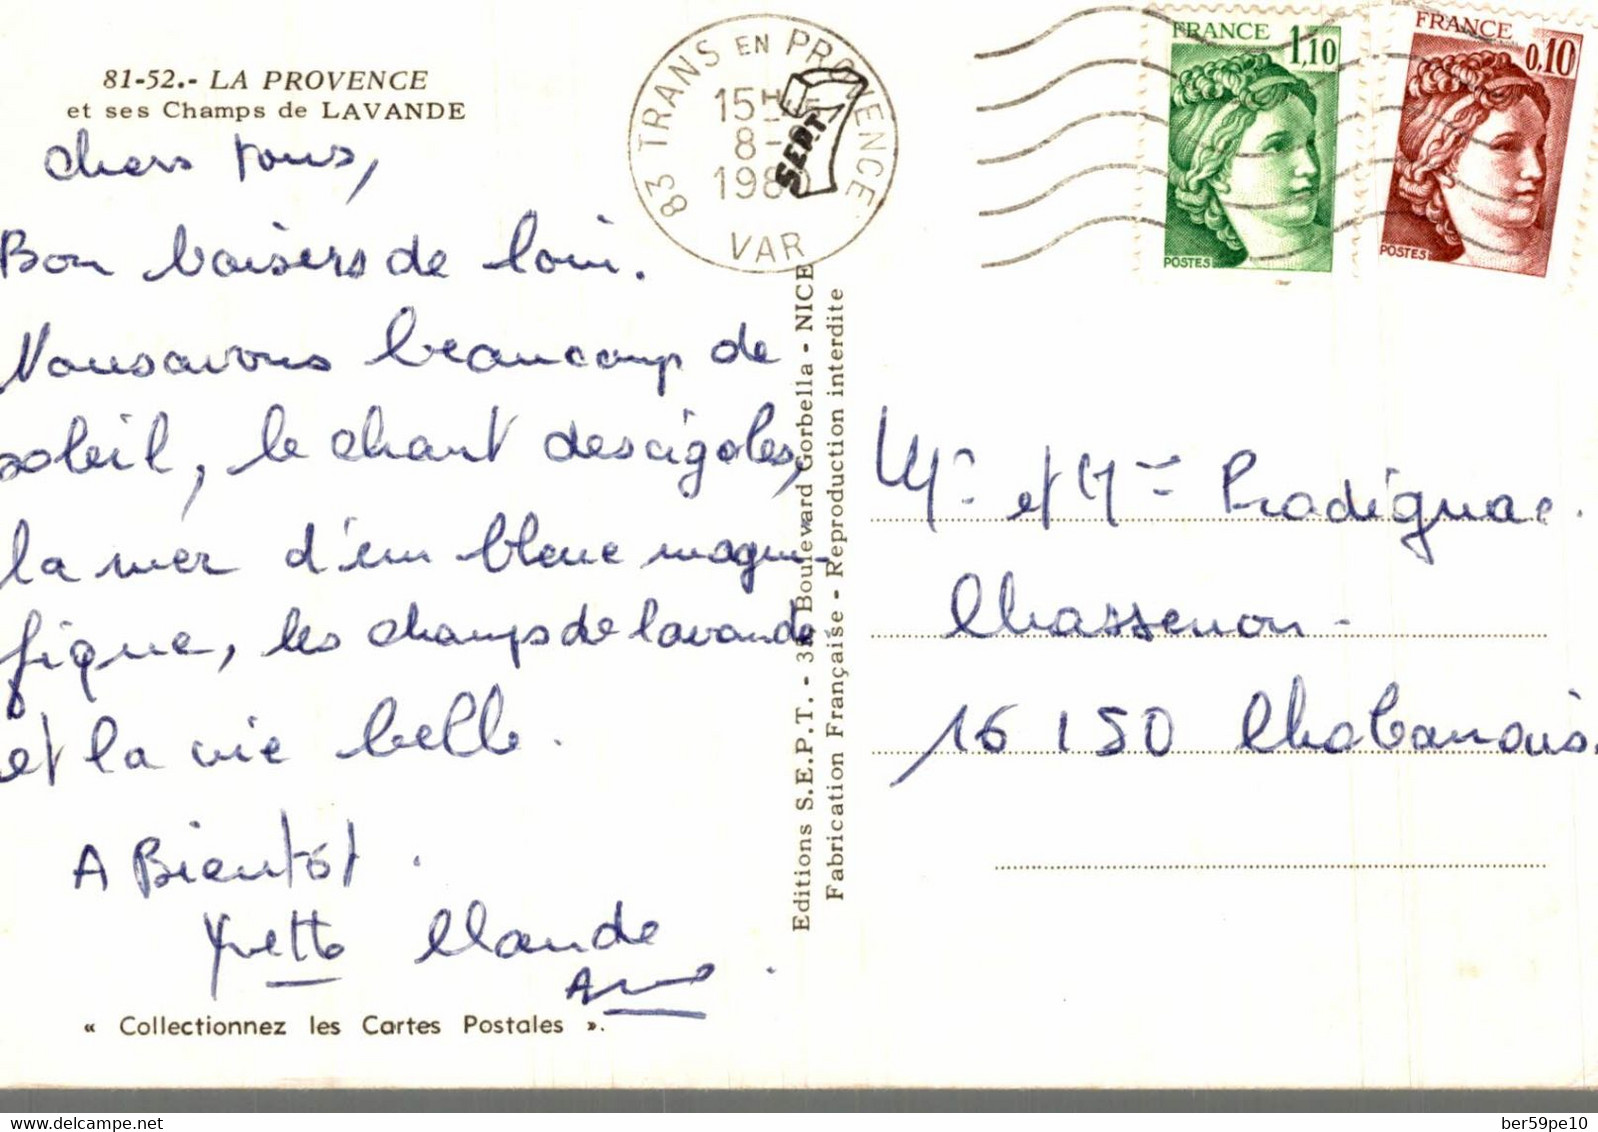 81-52.- LA PROVENCE
et ses Champs de LAVANDE
chers tous,
Bon baisers de loin.
Nous avons beaucoup de
soleil, le chant des cigales,
la mer d'un bleue magni-
fique, les champs de lavande
et la vie belle.
A Bientôt.
Yvette Claude
« Collectionnez les Cartes Postales ».
83 TRANS EN PROVENCE
15H
8-
198
VAR
SEPT
Editions S.E.P.T. - Boulevard Gorbella - NICE
Fabrication Française - Reproduction interdite
FRANCE 1,10
POSTES
FRANCE 0,10
POSTES
Mr et Mme Pradignac.
Chassenon-
16150 Chabanais.
delcampe.net
ber59pe10